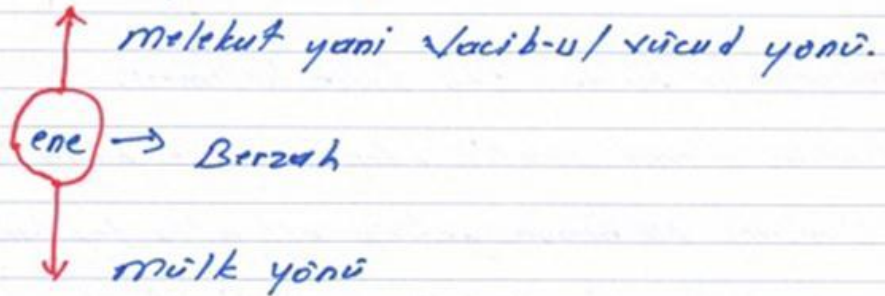 melekut yani Vacib-ul vücud yönü.
ene → Berzah
mülk yönü